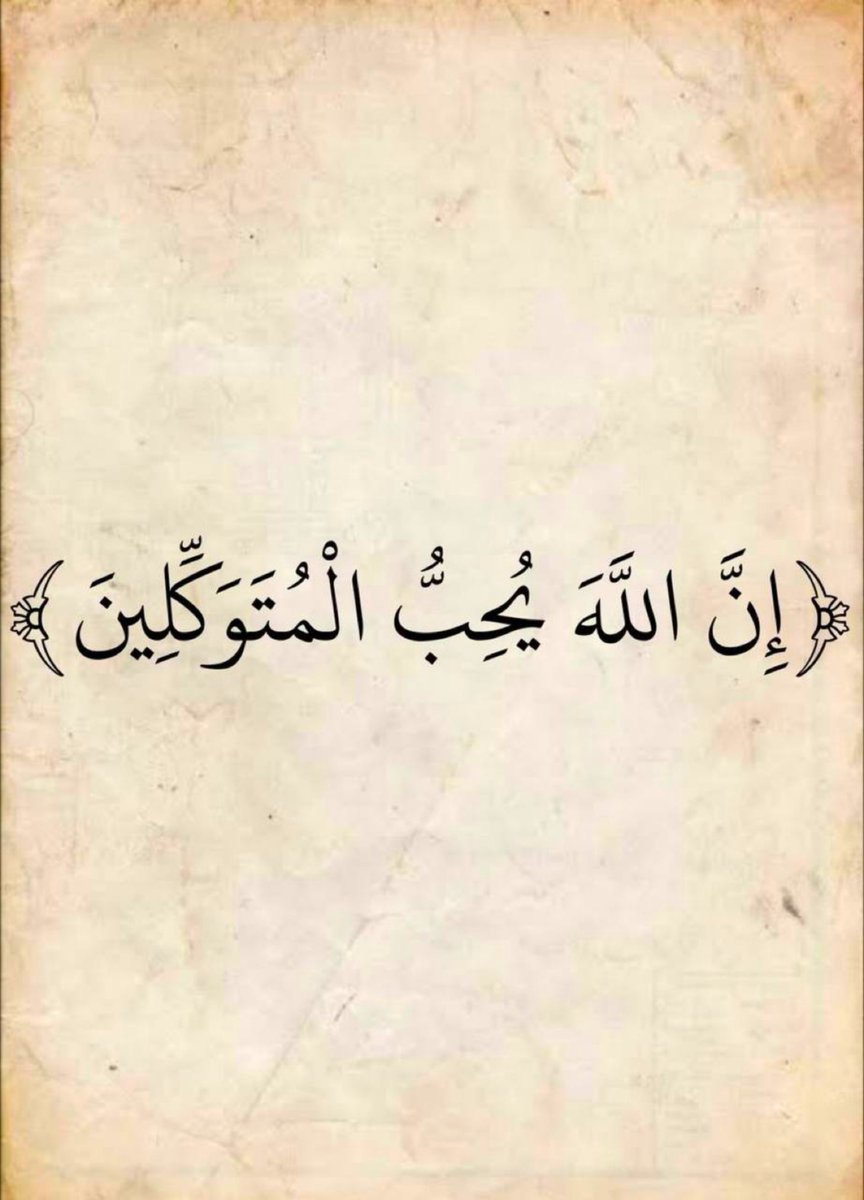 ﴿إِنَّ اللَّهَ يُحِبُّ الْمُتَوَكِّلِينَ﴾